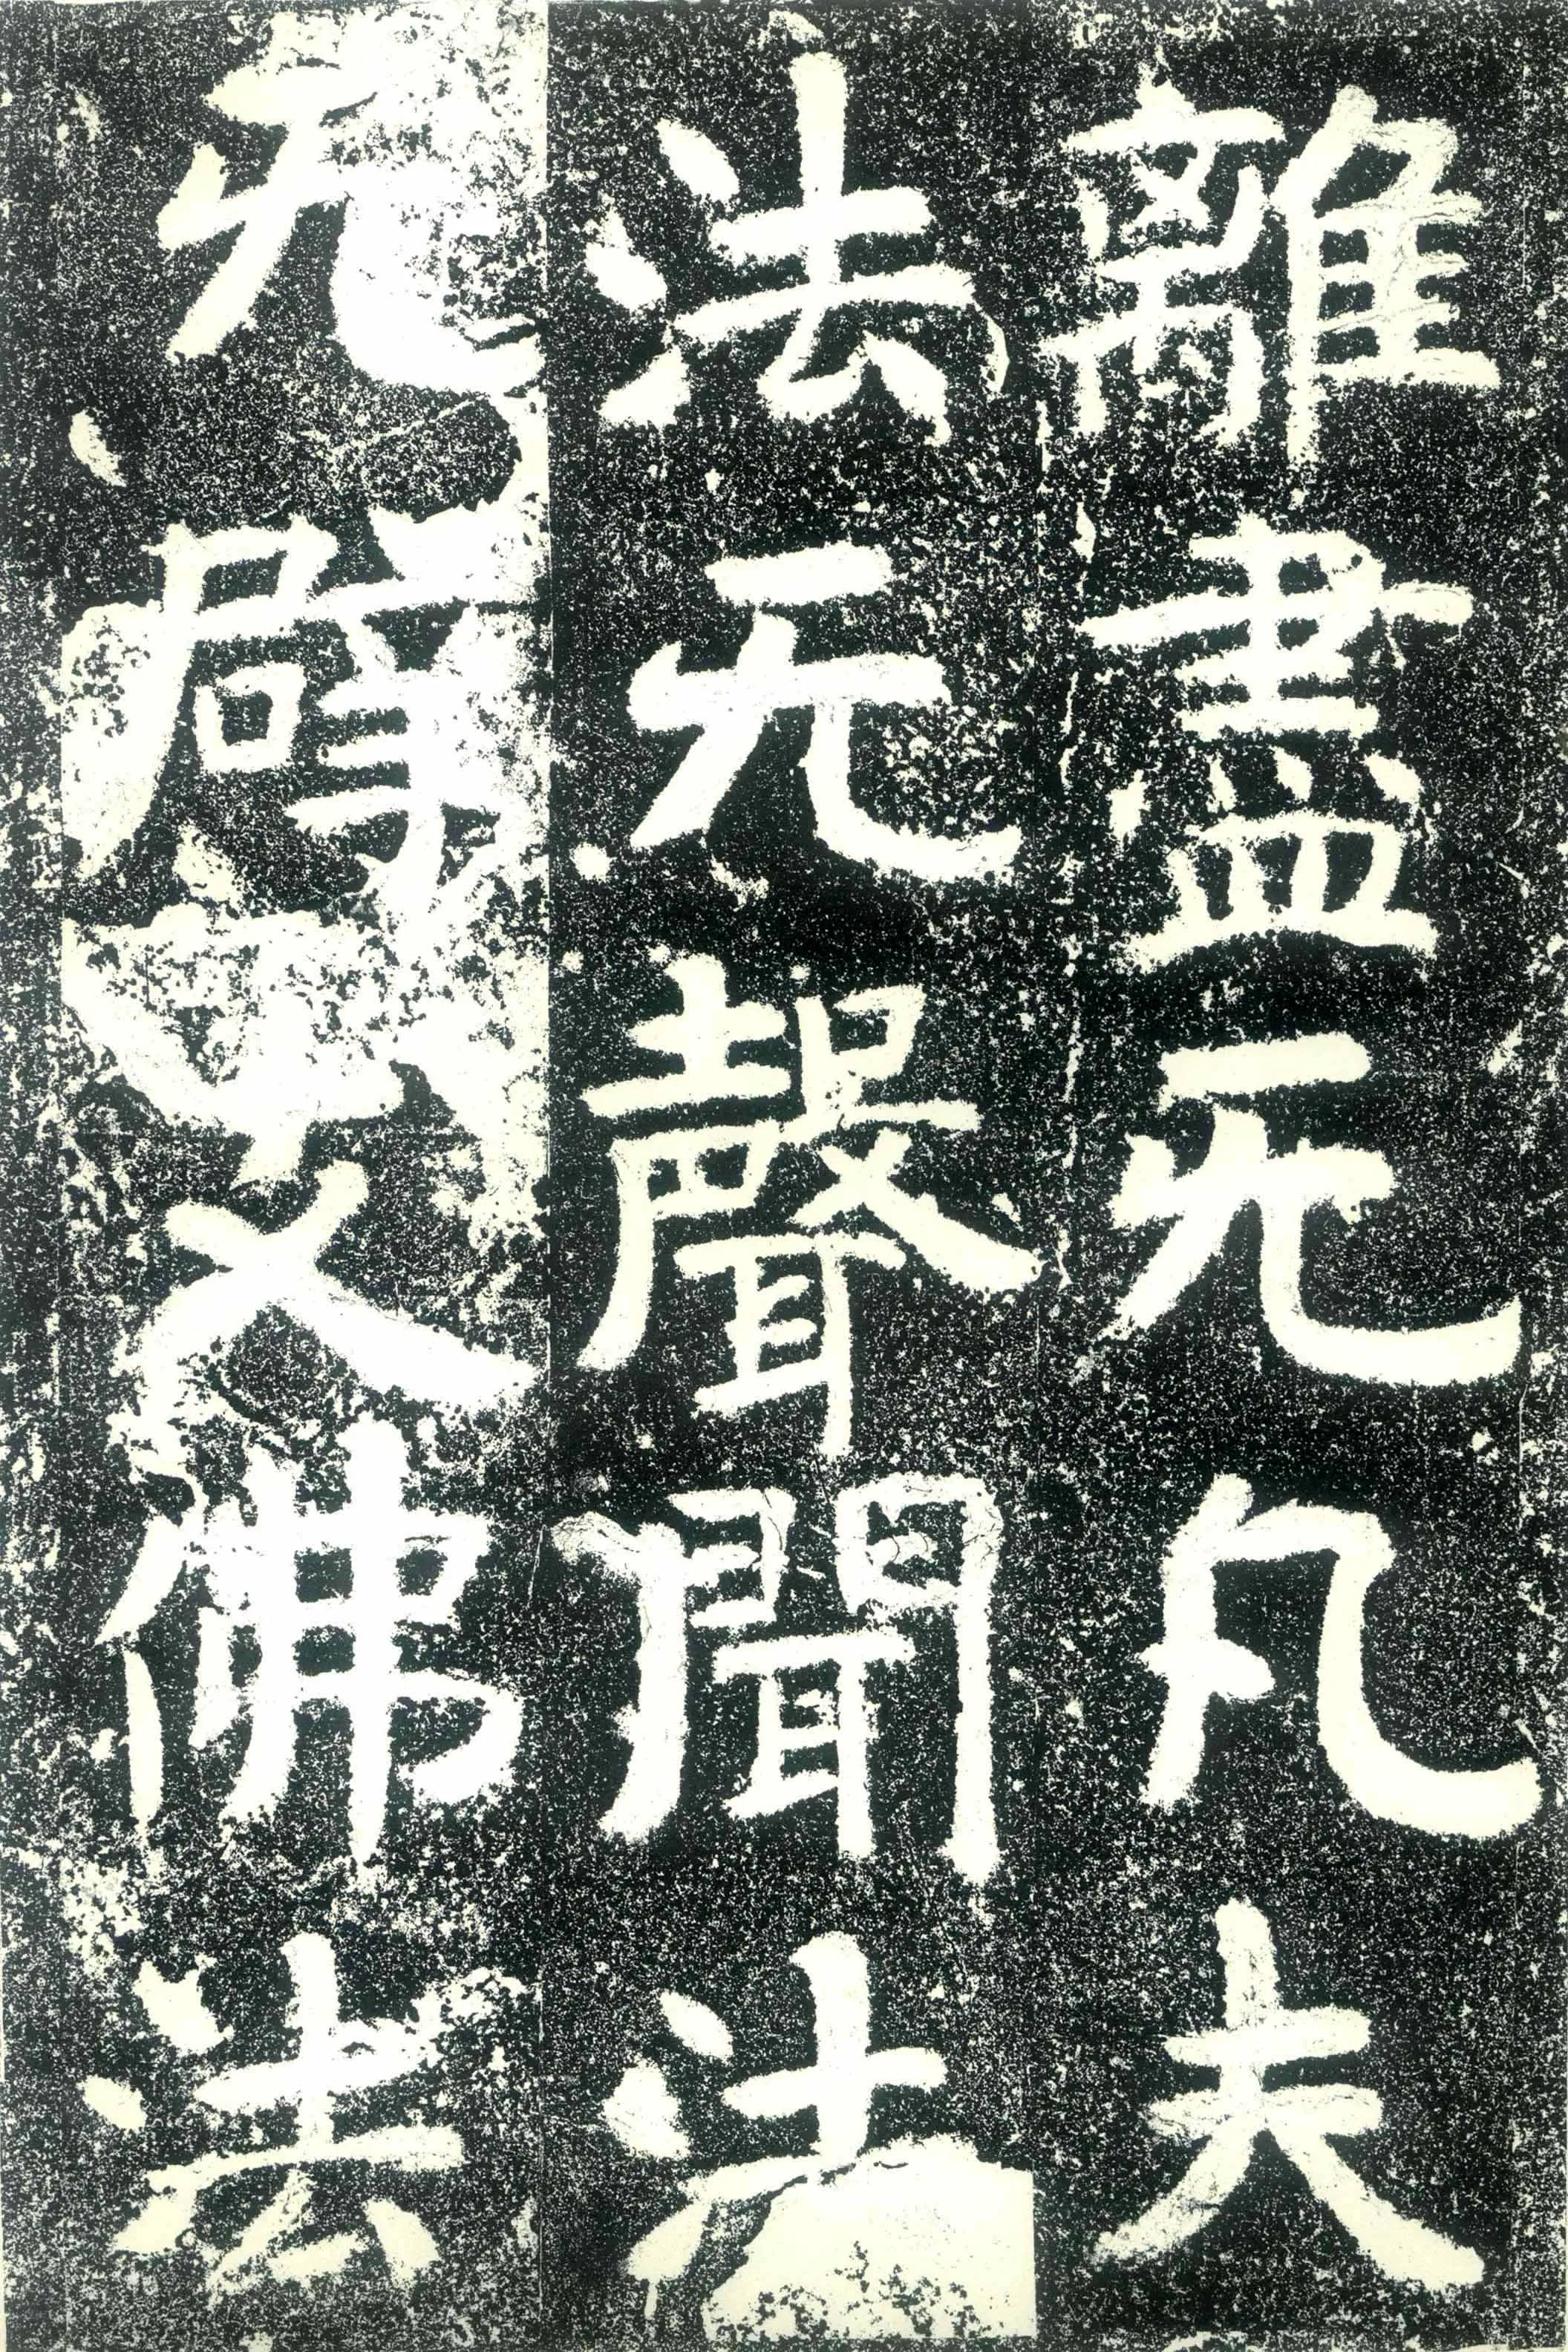 離盡无凡夫
法无聲聞法
无辟支佛法